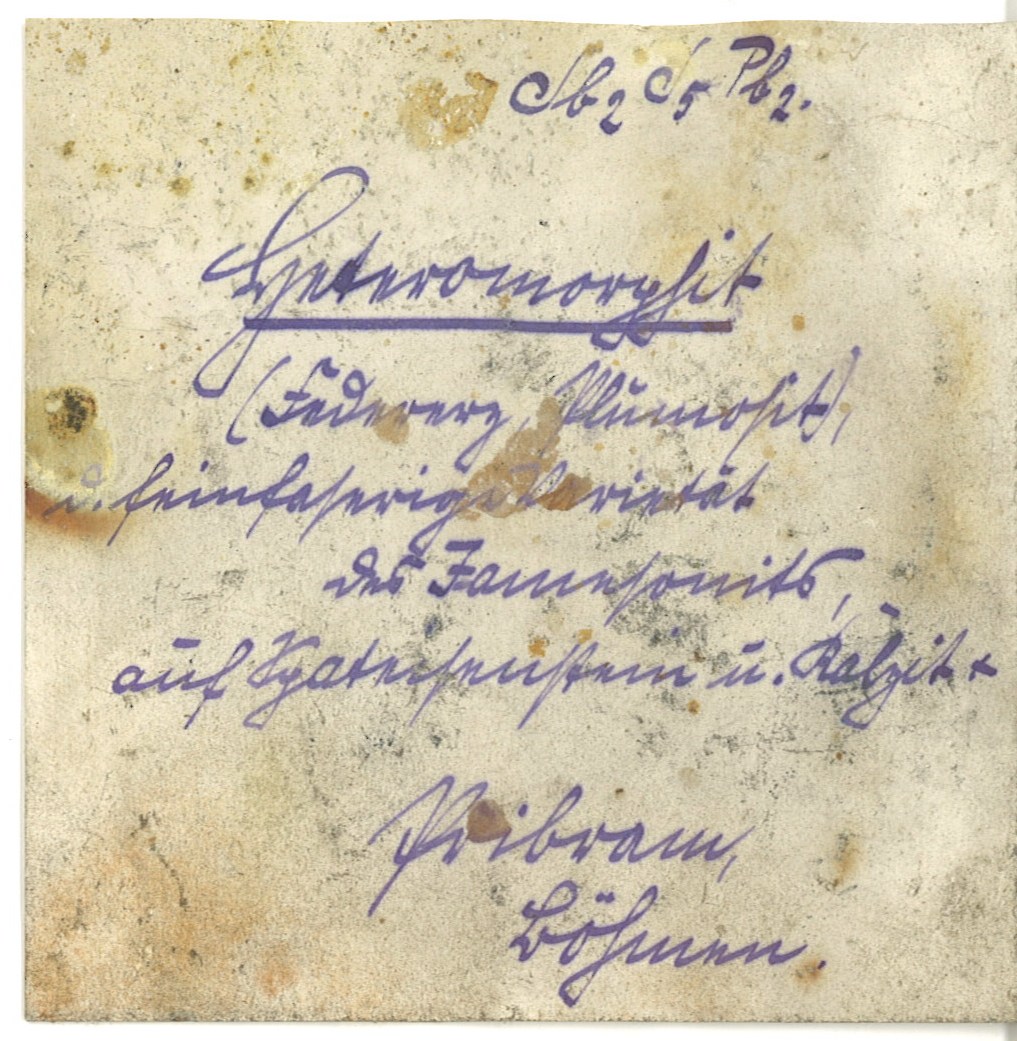 Sb2 S5 Pb2.
Heteromorphit
(Federerz, Plumosit),
u. feinfaserige Varietät
des Jamesonits,
auf Spateisenstein u. Kalzit +
Pribram,
Böhmen.